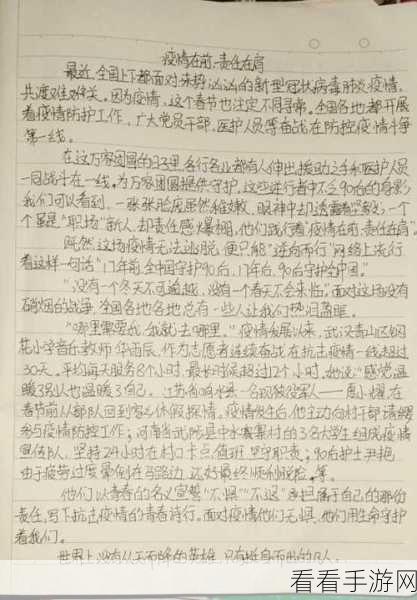 疫情在前,责任在肩
最近,全国上下都面对来势汹汹的新型冠状病毒肺炎疫情,
共渡难关。因为疫情,这个春节也注定不同寻常。全国各地都开展
着疫情防护工作,广大党员干部,医护人员等奋战在防控疫情斗争
第一线。
在这万家团圆的日子里,各行各业都有人伸出援助之手和医护人员
一同战斗在一线。为万家团圆提供守护,这些逆行者中不乏90后的身影
我们可以看到,一张张脸庞虽然稚嫩,眼神中却透露着坚毅;一个
个虽是“职场”新人,却责任感爆棚,他们践行着“疫情在前,责任在肩”。
既然这场疫情无法逃脱,便只能“逆向而行”网络上流行
着这样一句话“17年前全中国守护90后,17年后,90后守护全中国。”
“没有一个冬天不可逾越,没有一个春天不会来临。”面对这场没有
硝烟的战争,全国各地各总有一些人让我们热泪盈眶。
“哪里需要我,我就去哪里。”疫情发展以来,武汉青山区钢
花小学音乐教师华雨辰,作为志愿者连续奋战在抗击疫情一线超过
30天。平均每天服务8个小时,最长时候超过12个小时,她说:“感觉温
暖了别人也温暖了自己。江苏省响水县一名现役军人——周小耀,在
春节前从部队回到家乡休假探亲。疫情发生后,他主动向村干部请缨
参与疫情防控工作;河南省武陟县中水寨村的3名大学生组成疫情
宣传队,坚持24小时在村口卡点值班,坚守职责;90后护士尹艳
由于疲劳过度晕倒在马路边,还好最终顺利脱险。等。
他们以青春的名义宣誓“不惧”“不退”承担属于自己的那份
责任,写下抗击疫情的青春诗行。面对疫情他们无惧,他们用生命守护
着我们。
世界上没有从天而降的英雄,只有挺身而出的凡人。
看看手游网
www.kkssyy.com